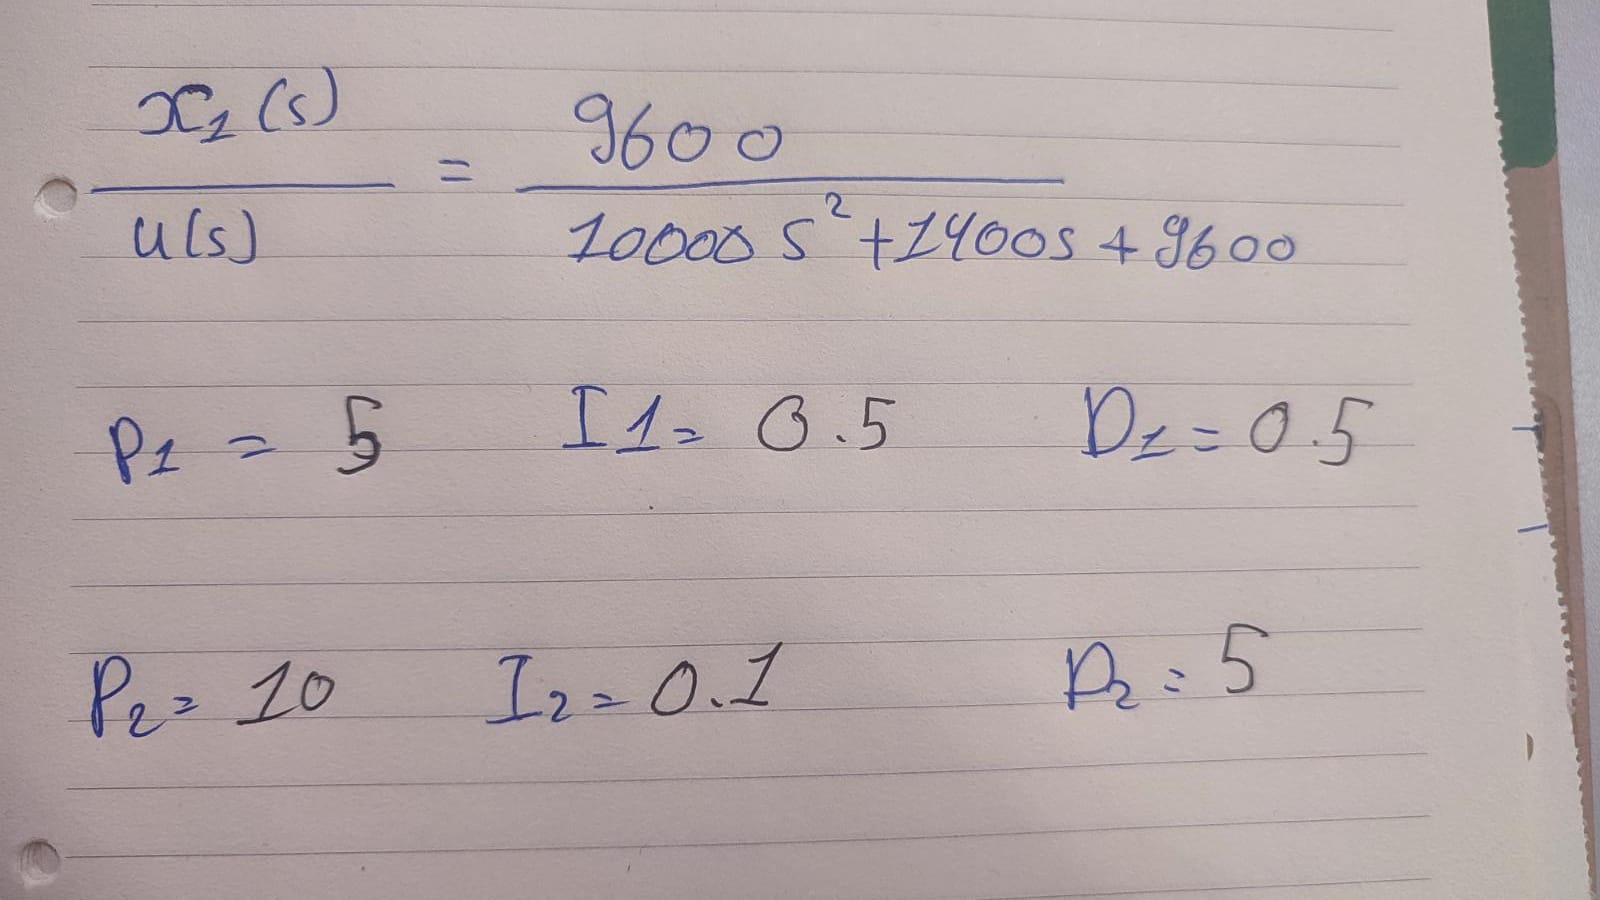 x₁(s) / u(s) = 9600 / 10000 s² + 1400s + 9600
P₁ = 5 I1 = 0.5 D₁ = 0.5
P₂ = 10 I₂ = 0.1 D₂ = 5